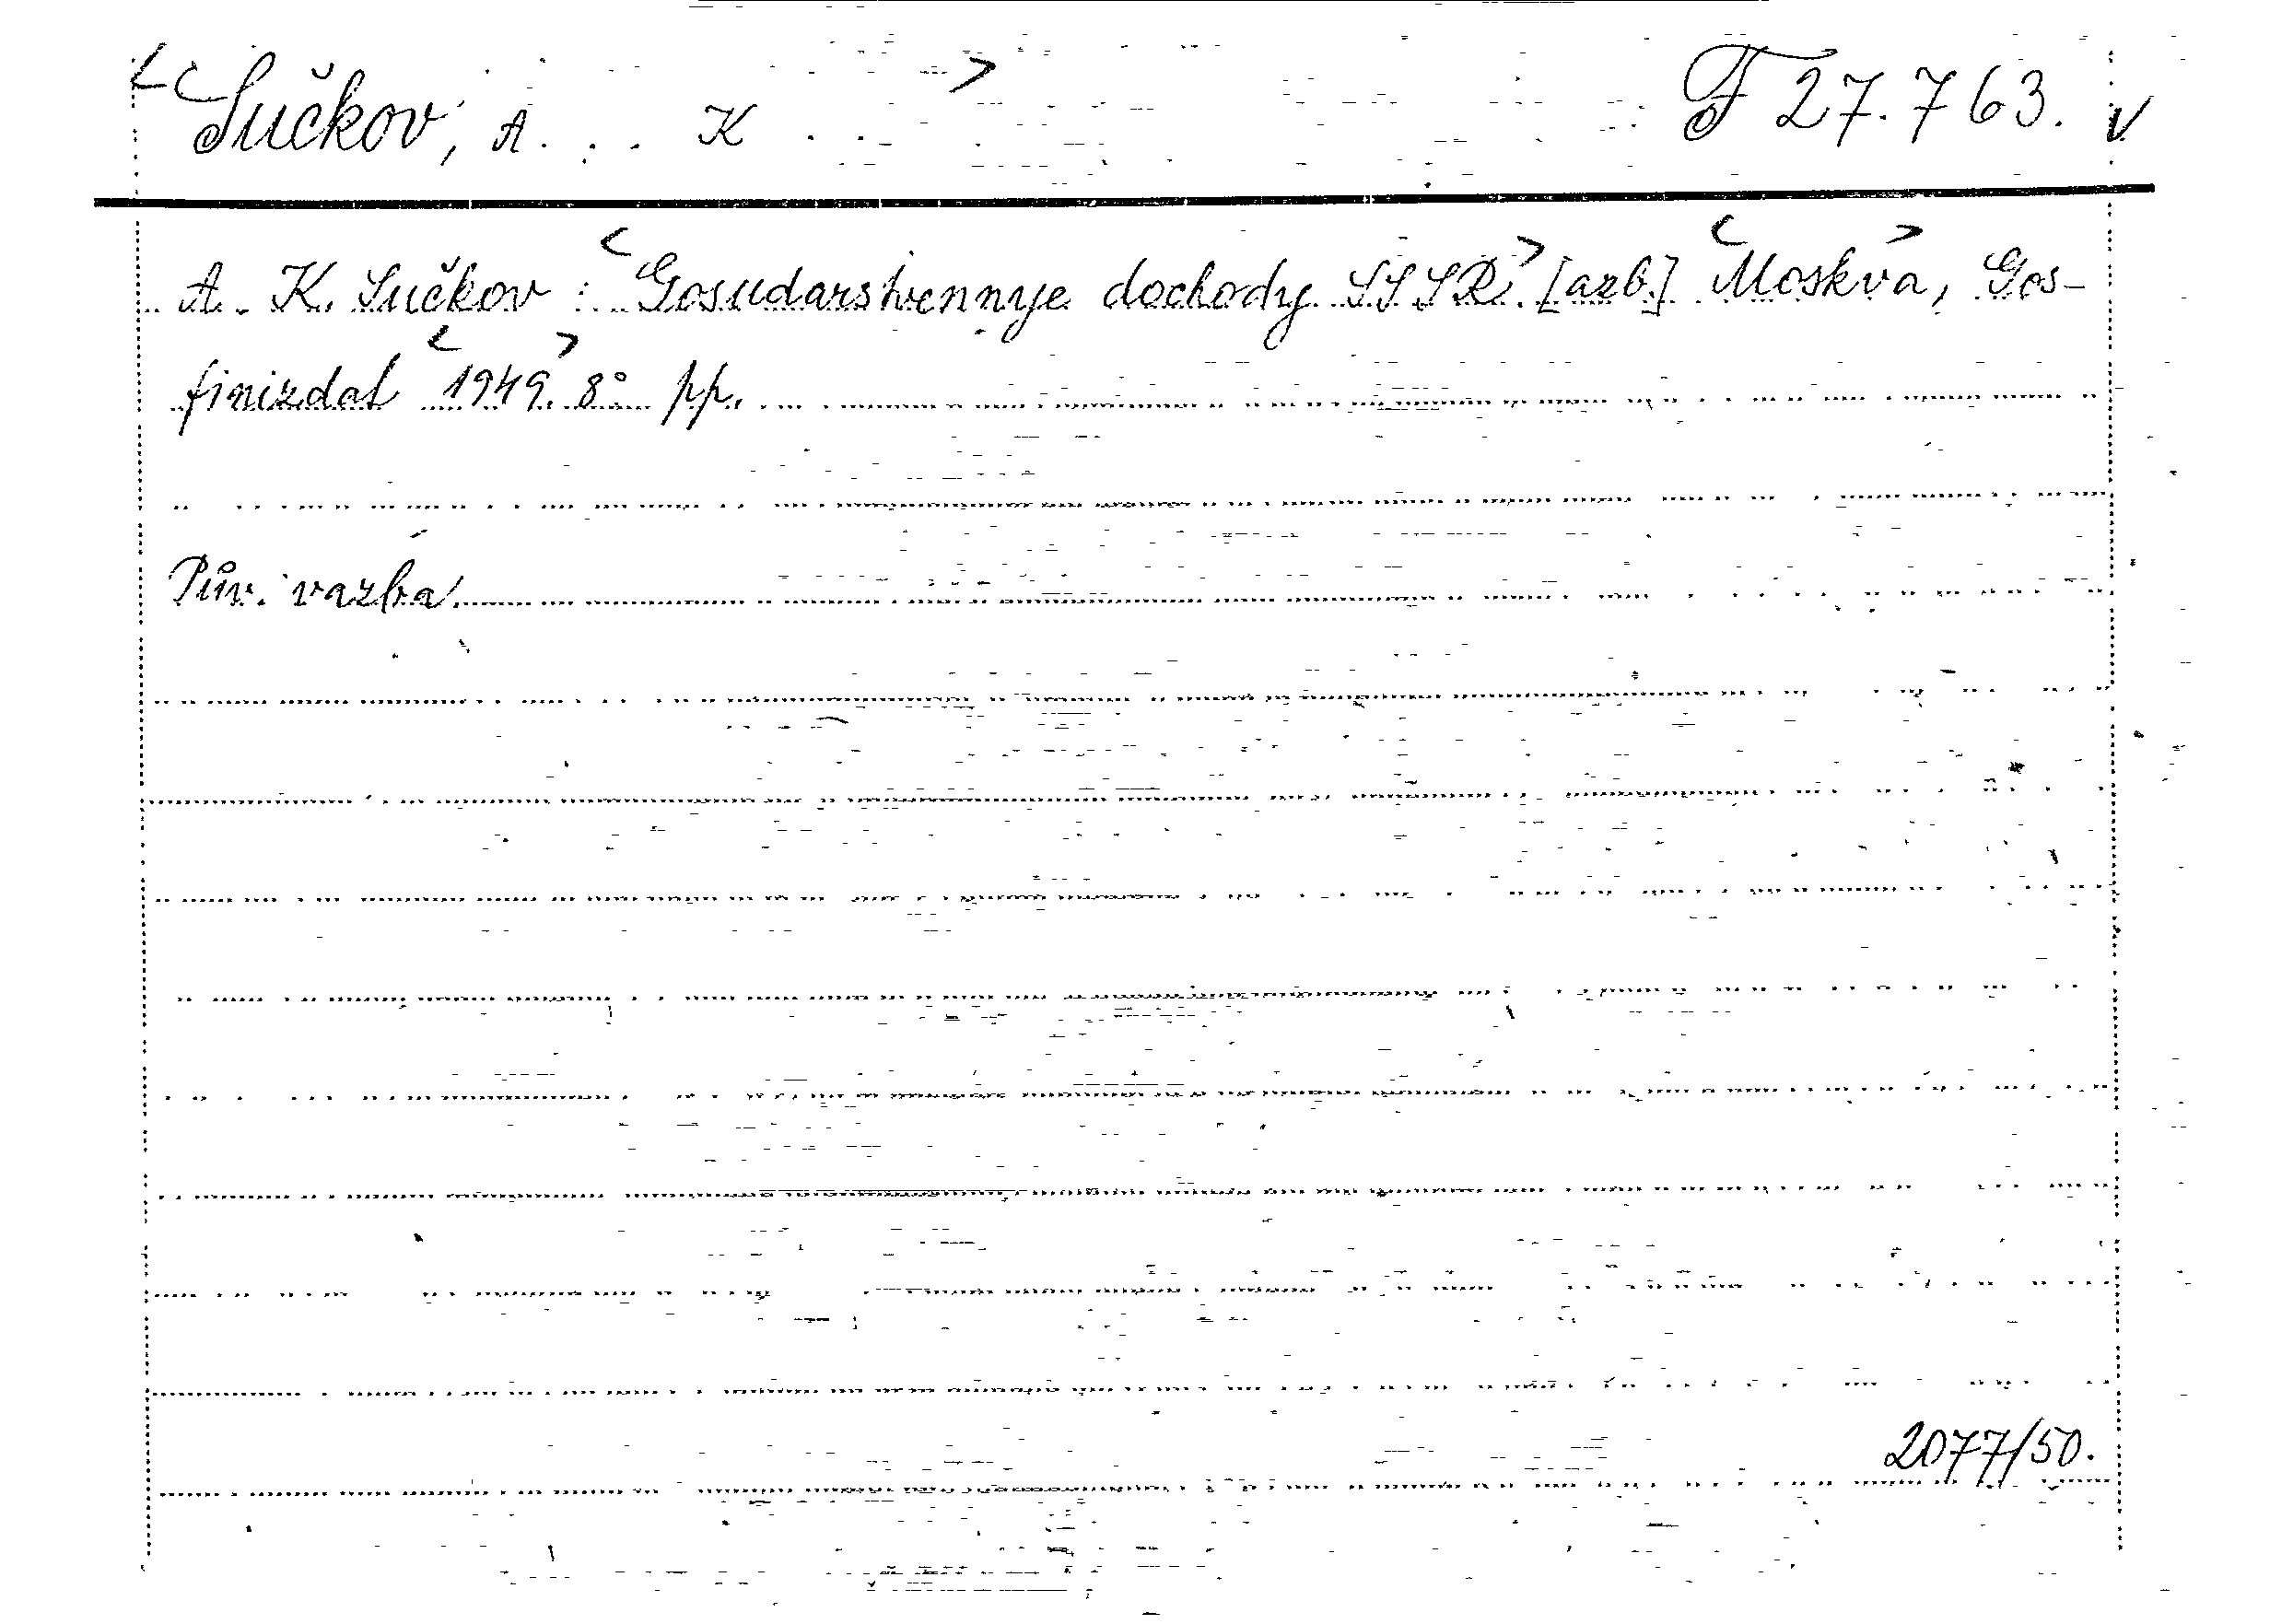 <Sučkov, A... K...> F 27.763. v
A. K. Sučkov: <Gosudarstvennye dochody SSSR>. [azb.] <Moskva>, Gos-
finizdat <1949>. 8° pp.
Pův. vazba.
2077/50.